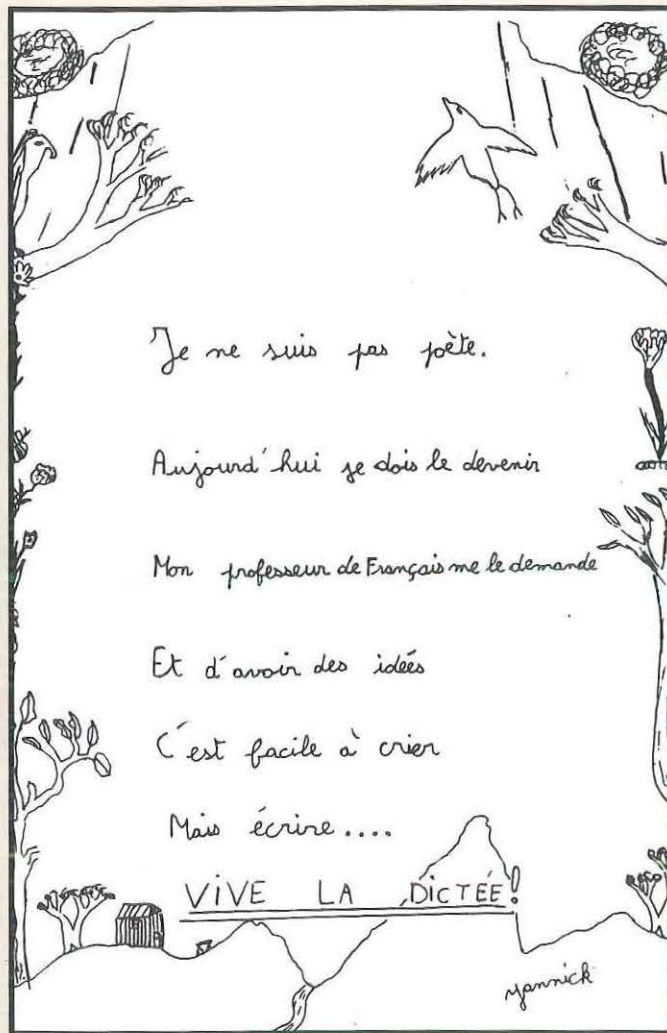 Je ne suis pas poète.
Aujourd'hui je dois le devenir
Mon professeur de Français me le demande
Et d'avoir des idées
C'est facile à crier
Mais écrire....
VIVE LA DICTÉE!
yannick